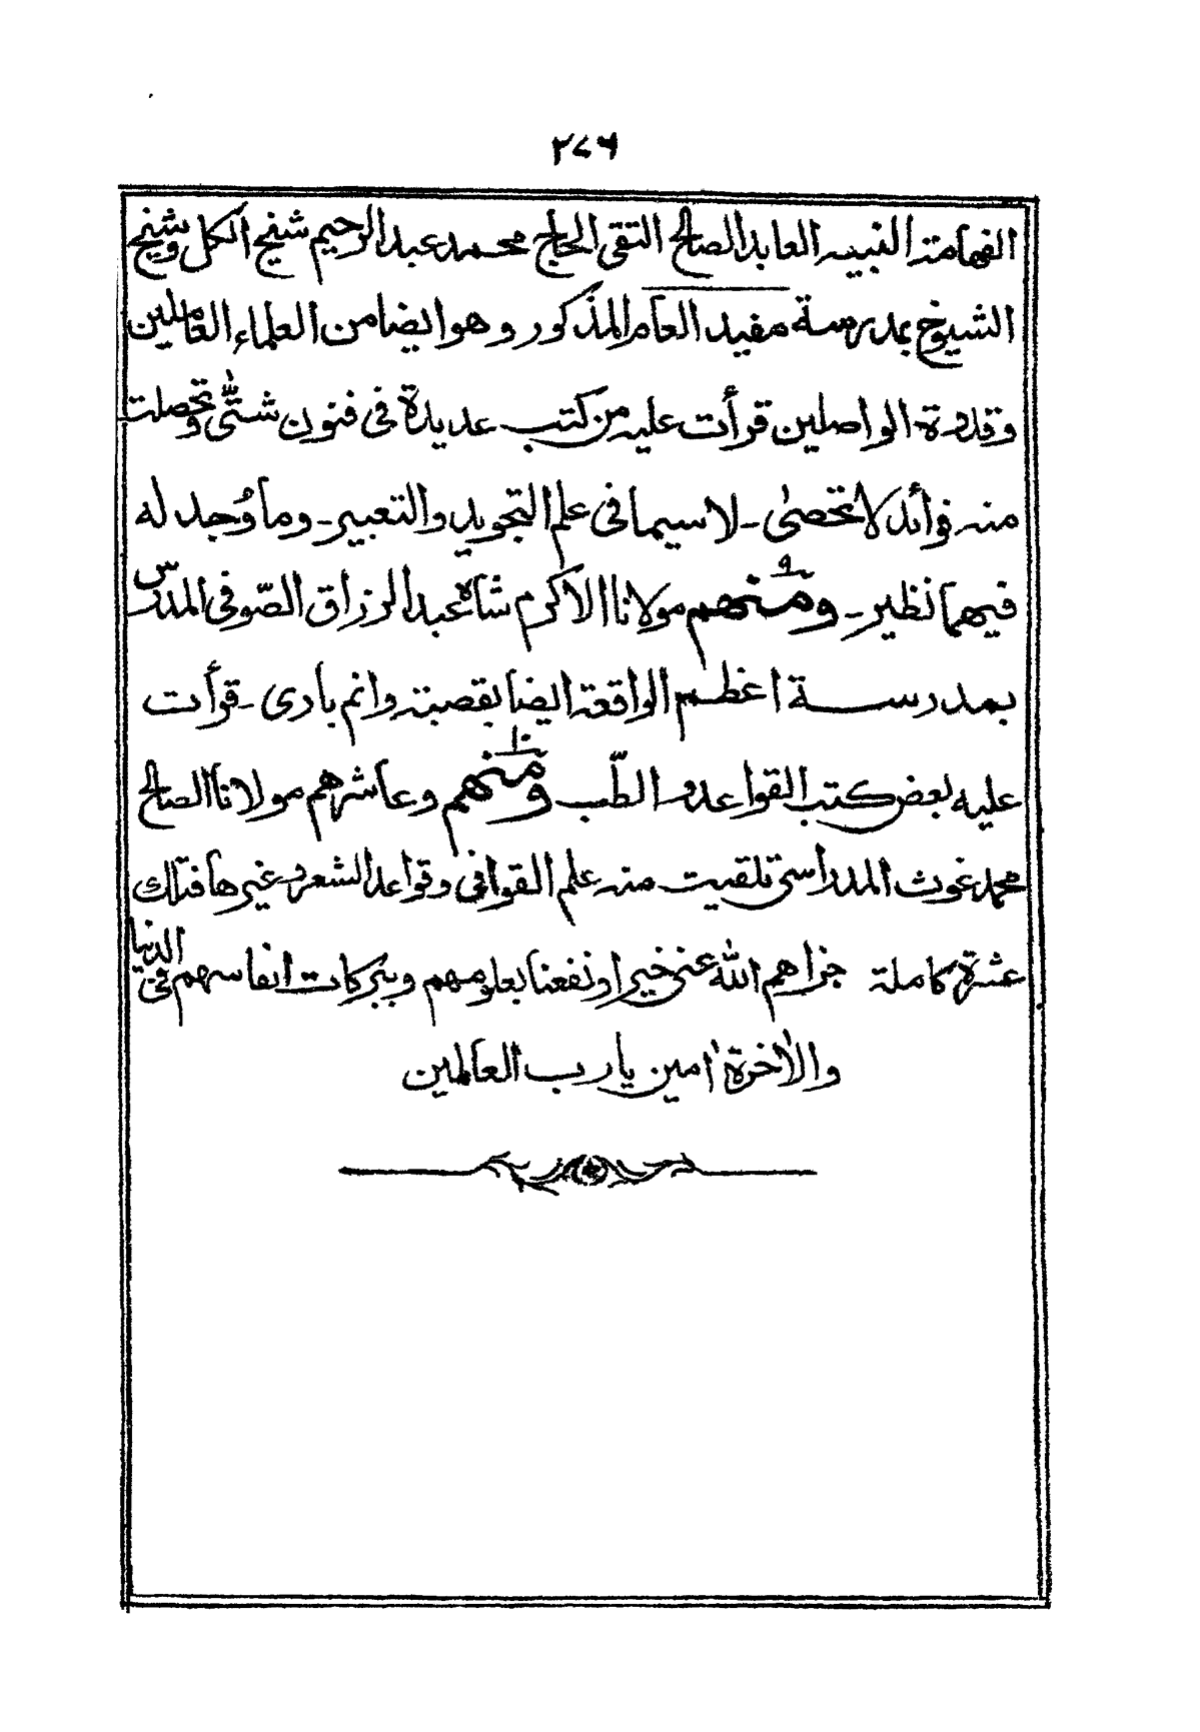 ٢٧٦
الفهامة النبيه العابد الصالح التقى الحاج محمد عبد الرحيم شيخ الكل وشيخ
الشيوخ بمدرسة مفيد العام المذكور وهو ايضا من العلماء العاملين
وقدوة الواصلين قرأت عليه من كتب عديدة فى فنون شتّٰى وتحصلت
منه فوائد لا تحصىٰ ۔ لا سيما فى علم التجويد والتعبير ۔ وما وُجد له
فيهما نظير ۔ ومنهم ٩ مولانا الاكرم شاه عبد الرزاق الصّوفى المدرس
بمدرسة اعظم الواقعة ايضا بقصبة وانم بادى ۔ قرأت
عليه بعض كتب القواعد و الطّب ومنهم ١٠ وعاشرهم مولانا الصالح
محمد غوث المدراسى تلقيت منه علم القوافى وقواعد الشعر وغيرها فتلك
عشرة كاملة جزاهم الله عنى خيرا ونفعنا بعلومهم وببركات انفاسهم فى الدنيا
والاٰخرة اٰمين يا رب العالمين